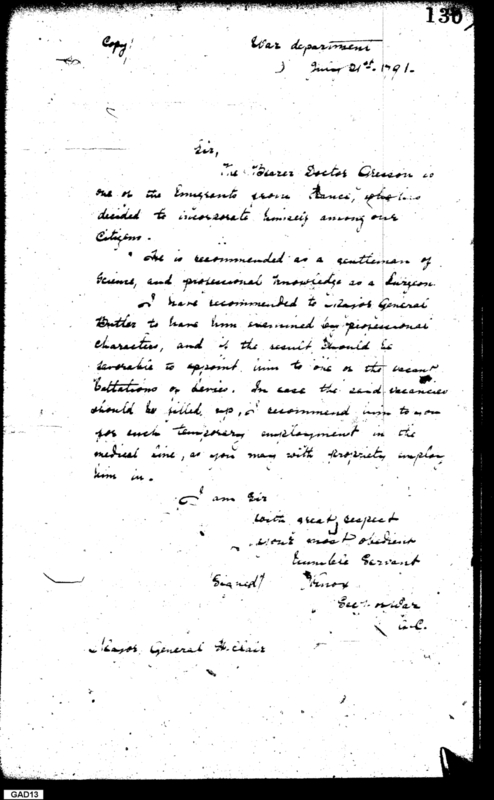 130
Copy
War department
21st. 1791.
Sir,
The Bearer Doctor is
one of the Emigrants from France, who has
decided to incorporate himself among our
Citizens.
He is recommended as a gentleman of
Science, and professional knowledge as a Surgeon
I have recommended to Major General
Butler to have him examined by professional
characters, and if the result should be
favorable to appoint him to one of the vacant
Battalions of Levies. In case the said vacancies
should be filled up, I recommend him to you
for such temporary employment in the
medical line, as you may with propriety employ
him in.
I am Sir
with great respect
your most obedient
humble Servant
Signed Knox
Secy of War
Major General St. Clair
GAD13